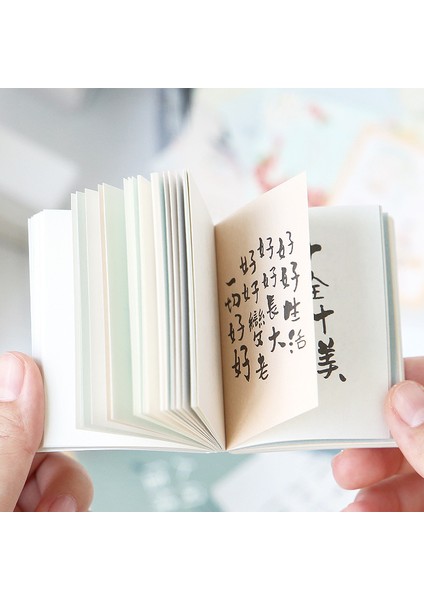 好好生活
好好長大
好好變老
一切好好
十全十美